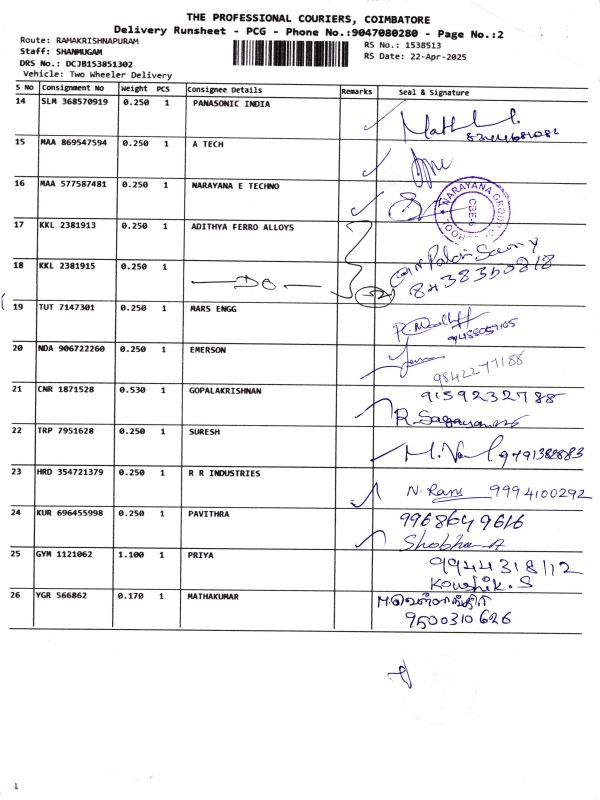 THE PROFESSIONAL COURIERS, COIMBATORE
Delivery Runsheet - PCG - Phone No.:9047080280 - Page No.:2
Route: RAMAKRISHNAPURAM
RS No.: 1538513
Staff: SHANMUGAM
RS Date: 22-Apr-2025
DRS No.: DCJB153851302
Vehicle: Two Wheeler Delivery
S No Consignment No Weight PCS Consignee Details Remarks Seal & Signature
14 SLM 368570919 0.250 1 PANASONIC INDIA
15 MAA 869547594 0.250 1 A TECH
16 MAA 577587481 0.250 1 NARAYANA E TECHNO
NARAYANA GROUP
17 KKL 2381913 0.250 1 ADITHYA FERRO ALLOYS
18 KKL 2381915 0.250 1 —DO— 52 8438350818
19 TUT 7147301 0.250 1 MARS ENGG
20 NDA 906722260 0.250 1 EMERSON 9842277188
21 CNR 1871528 0.530 1 GOPALAKRISHNAN 9159232788
22 TRP 7951628 0.250 1 SURESH
23 HRD 354721379 0.250 1 R R INDUSTRIES N. Rani 9994100292
24 KUR 696455998 0.250 1 PAVITHRA 9968649616
Shobha A
25 GYM 1121062 1.100 1 PRIYA 9944318112
Koushik. S
26 YGR 566862 0.170 1 MATHAKUMAR
9500310626